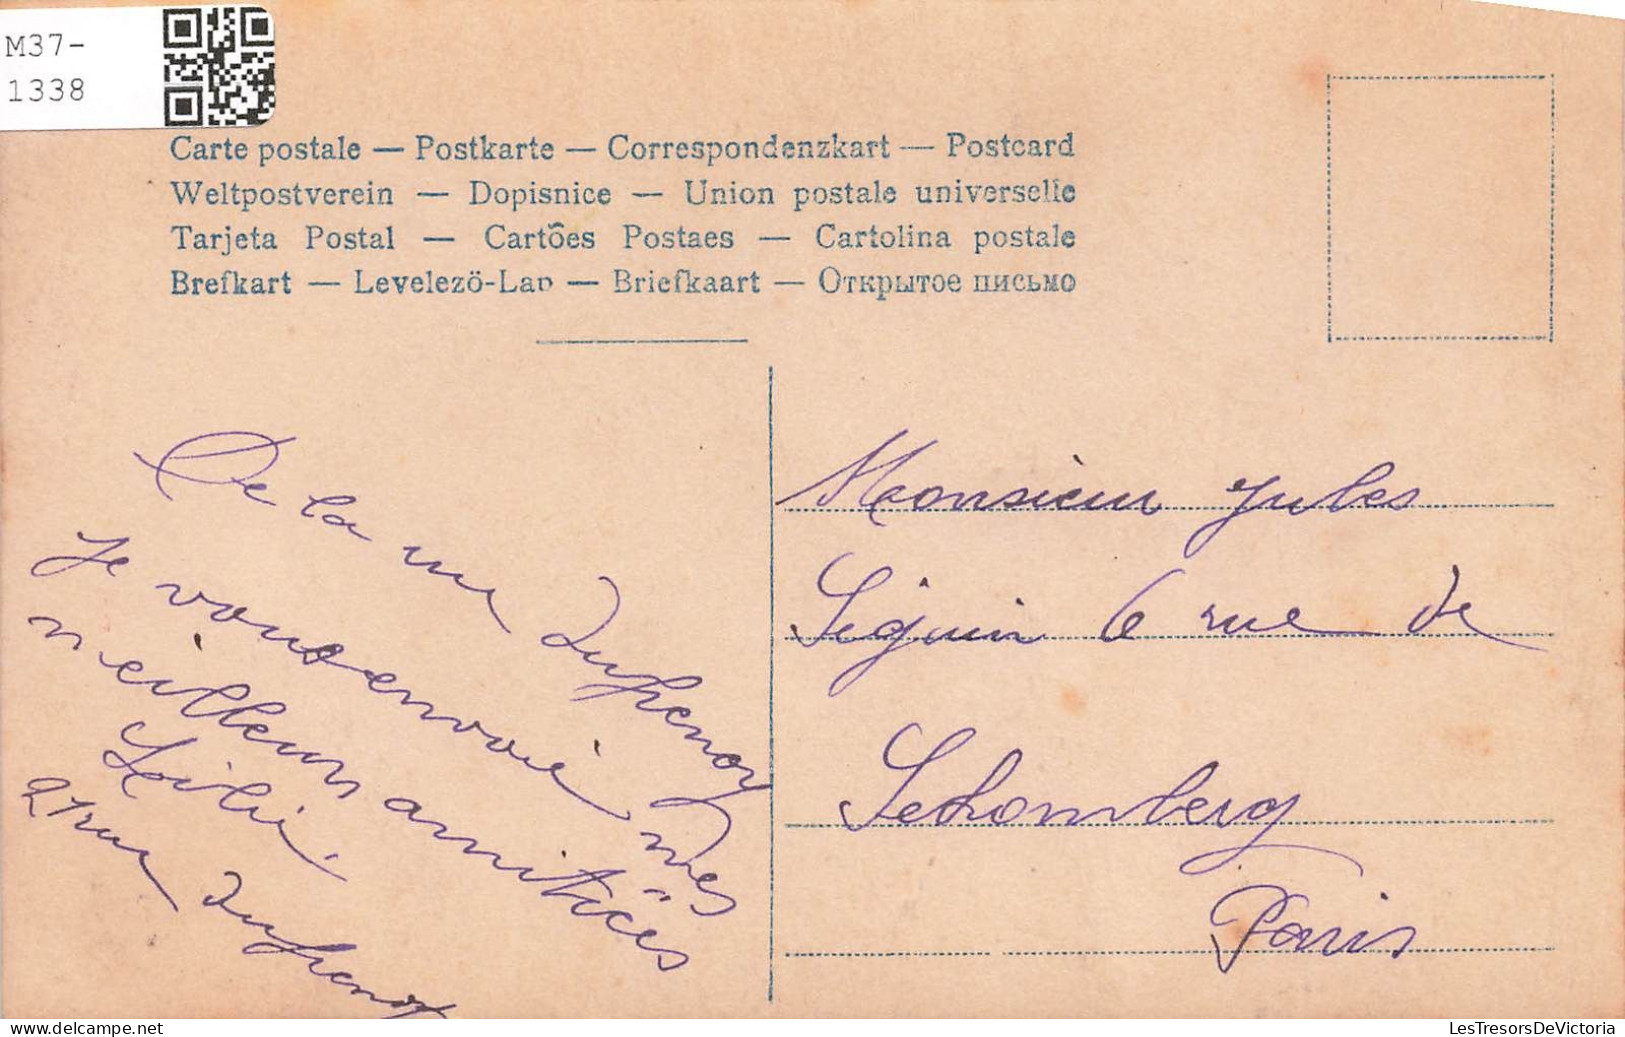 M37-
1338
Carte postale — Postkarte — Correspondenzkart — Postcard
Weltpostverein — Dopisnice — Union postale universelle
Tarjeta Postal — Cartões Postaes — Cartolina postale
Brefkart — Levelezö-Lap — Briefkaart — Открытое письмо
De la rue Dufrenoy
Je vous envoie mes
meilleurs amitiés
Lilie.
21 rue Dufrenoy
Monsieur Jules
Séguin 6 rue de
Schomberg
Paris
LesTresorsDeVictoria